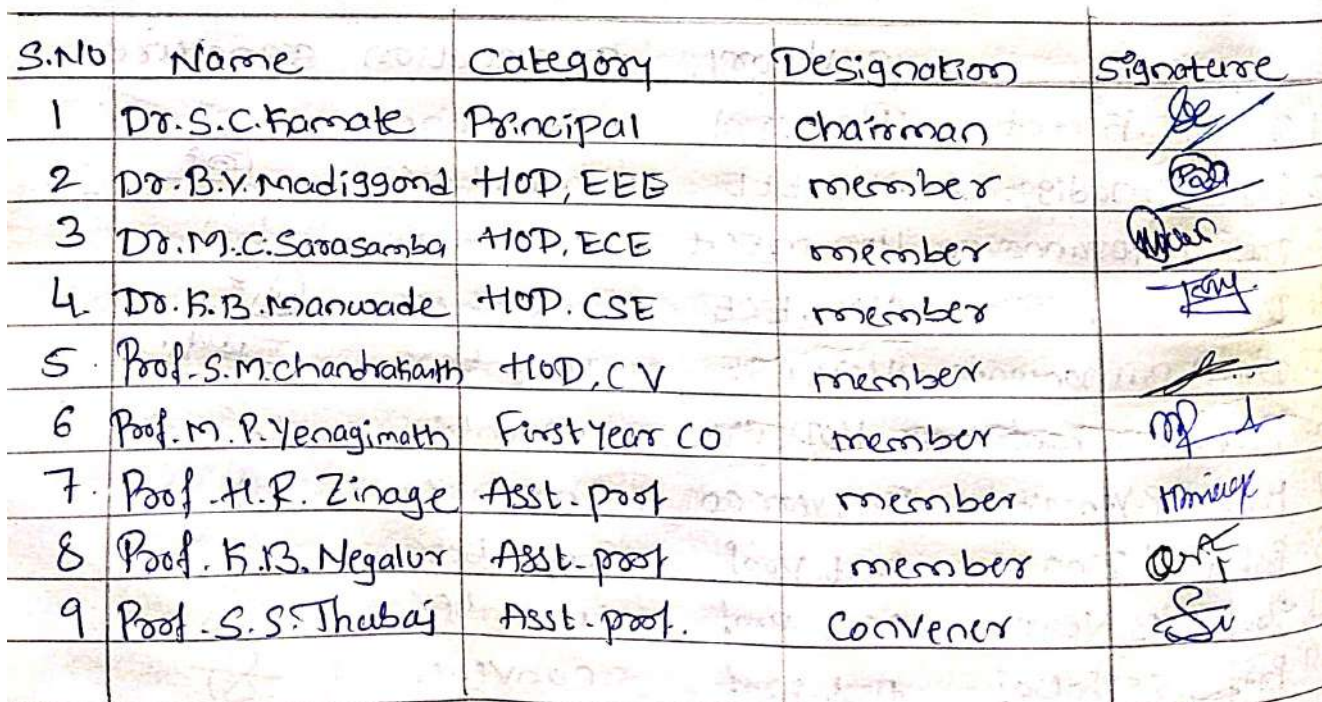 S.No Name Category Designation Signature
1 Dr. S.C. Kamate Principal chairman
2 Dr. B.V. Madiggond HOD, EEE member
3 Dr. M.C. Sarasamba HOD, ECE member
4. Dr. K.B. Manwade HOD. CSE member
5. Prof. S.M. Chandrakanth HOD, CV member
6 Prof. M. P. Yenagimath First Year CO member
7. Prof. H.R. Zinage Asst. prof member
8 Prof. K.B. Negalur Asst. prof member
9 Prof. S.S. Thabaj Asst. prof. Convener